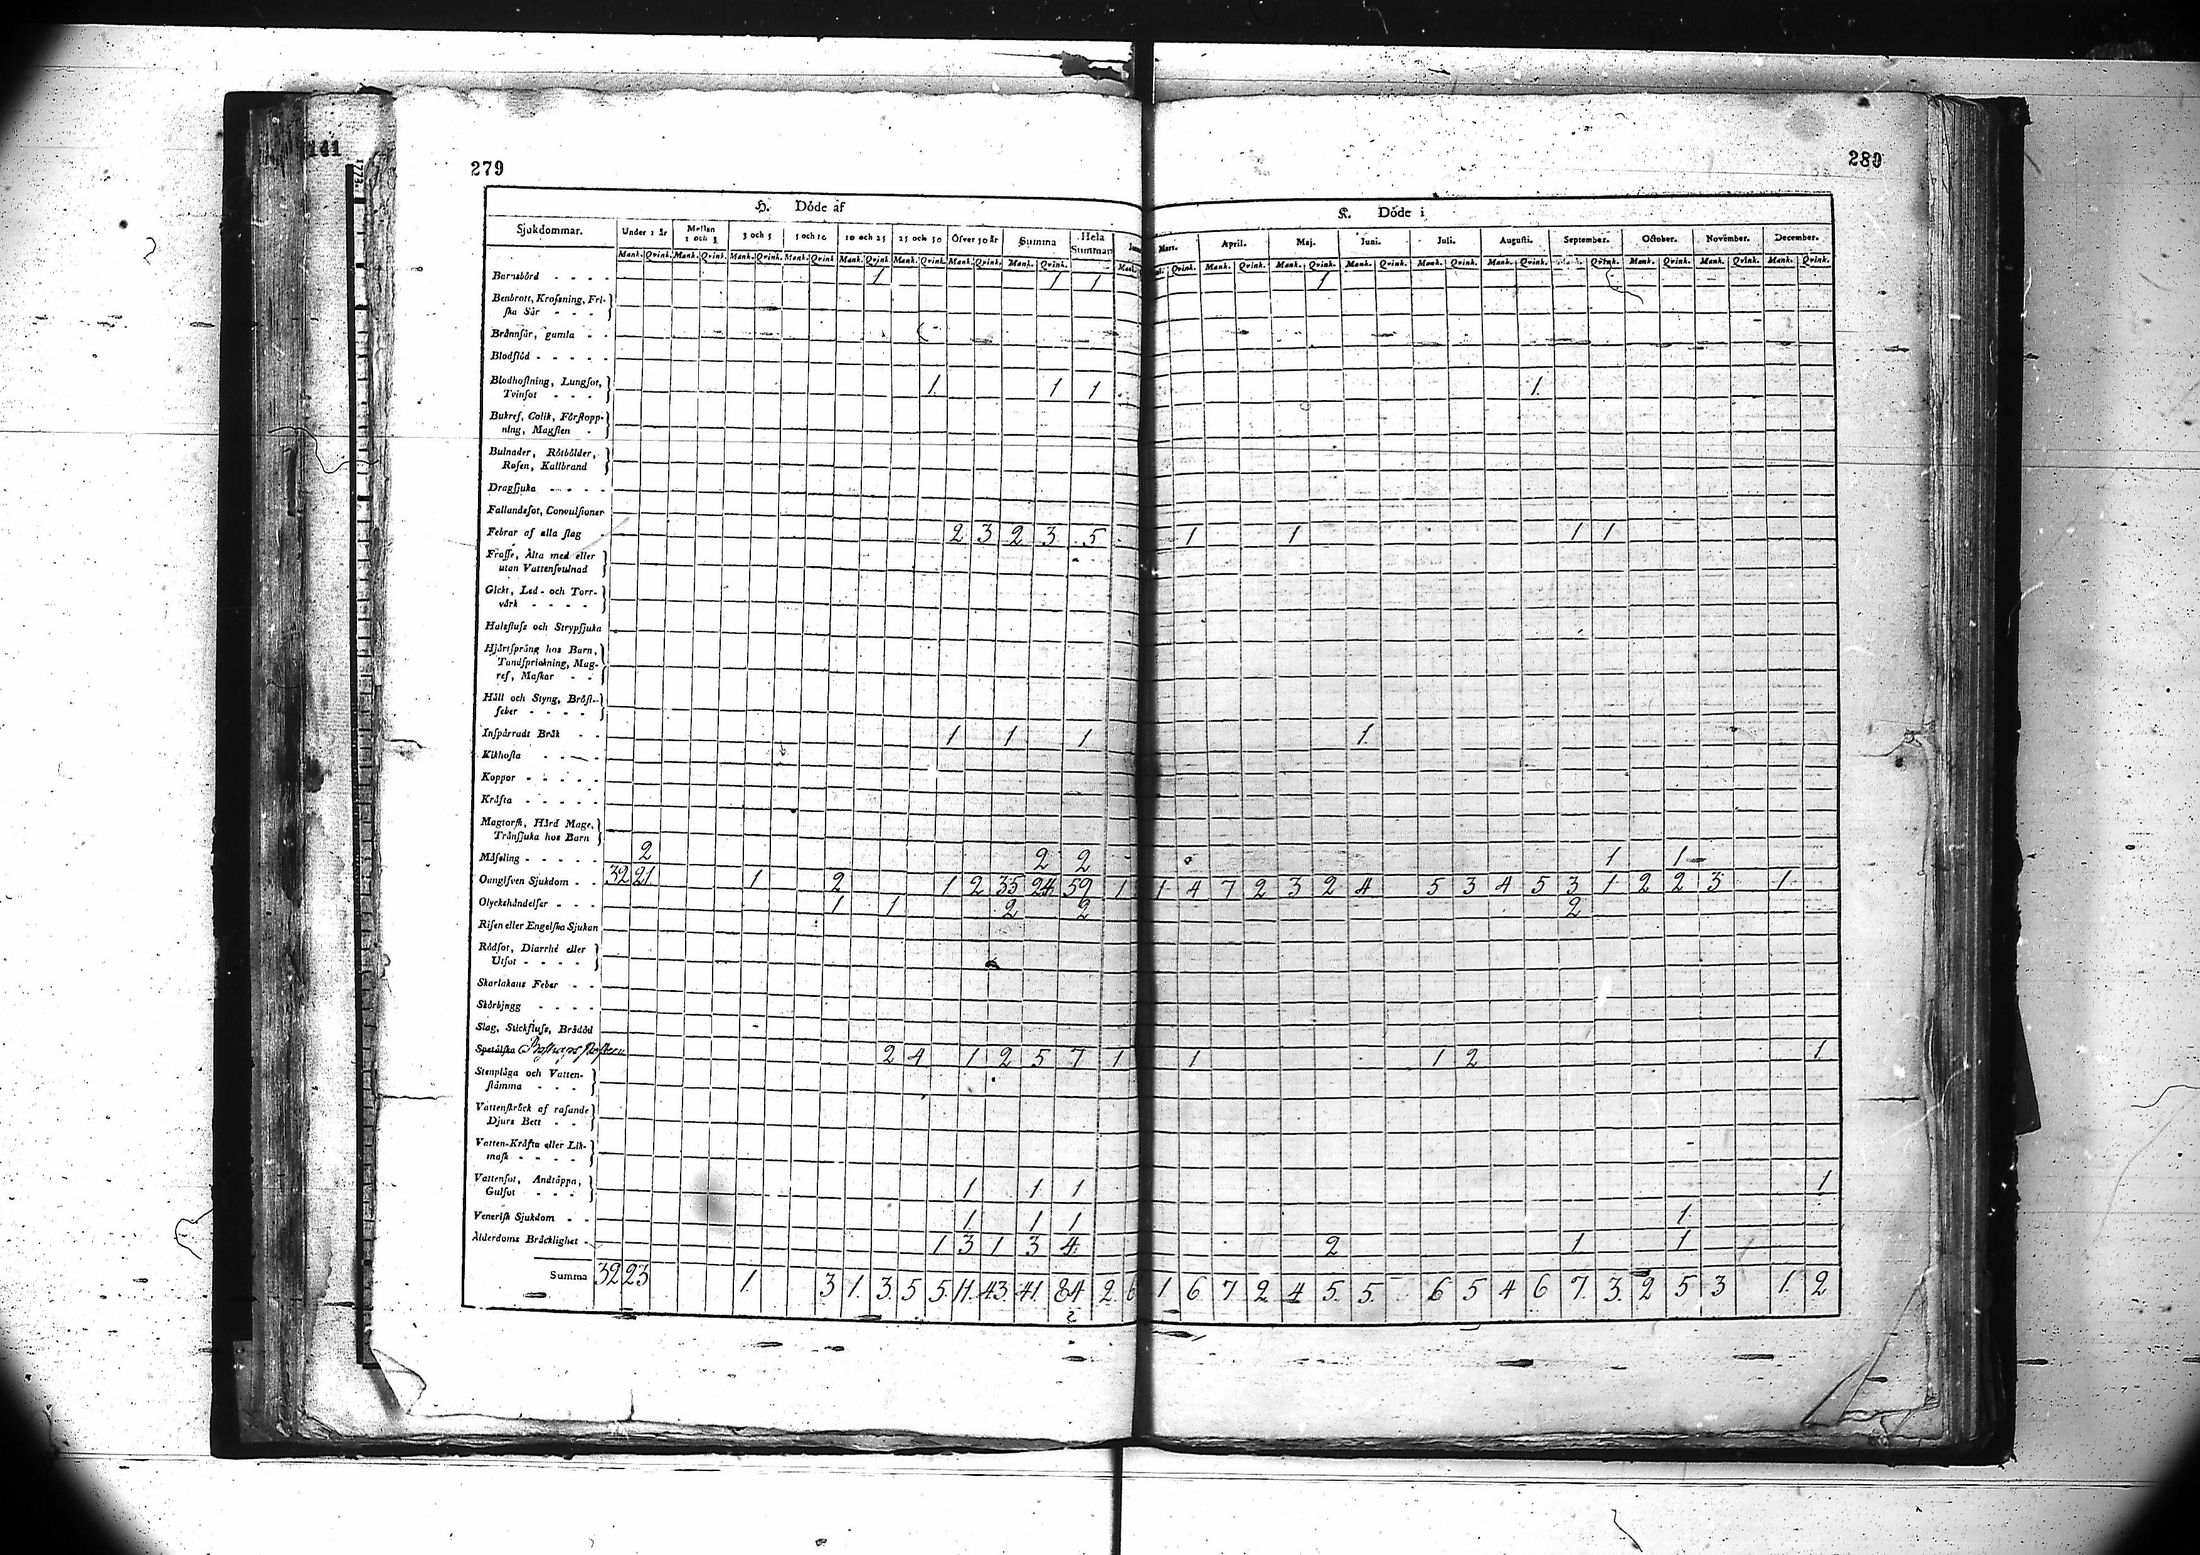 141
1773
279
280
H. Döde af
K. Döde i
Sjukdommar. Under 1 år Mellan 1 och 3 3 och 5 5 och 10 10 och 25 25 och 50 Öfver 50 år Summa Hela Summan
Mars. April. Maj. Juni. Juli. Augusti. September. October. November. December.
Mank. Qvink. Mank. Qvink. Mank. Qvink. Mank. Qvink. Mank. Qvink. Mank. Qvink. Mank. Qvink. Mank. Qvink.
Qvink. Mank. Qvink. Mank. Qvink. Mank. Qvink. Mank. Qvink. Mank. Qvink. Qvink. Mank. Qvink. Mank. Qvink. Mank. Qvink.
Barnsbörd - - - - 1 1 1 1
Benbrott, Krossning, Fri-
ska Sår - - -
Brännsår, gamla - -
Blodstöd - - - - -
Blodhostning, Lungsot, 1 1 1 1
Tvinsot - - -
Bukref, Colik, Förstopp-
ning, Magsten -
Bulnader, Rötbölder,
Rosen, Kallbrand
Dragsjuka - - - -
Fallandesot, Convulsioner
Febrar af alla slag 2 3 2 3 5 1 1 1 1
Frasse, Älta med eller
utan Vattensvulnad
Gickt, Led- och Torr-
värk - - - -
Halsfluss och Strypsjuka
Hjärtsprång hos Barn,
Tandsprickning, Mag-
ref, Maskar - -
Håll och Styng, Bröst-
feber - - - -
Inspärradt Bråk - - 1 1 1 1
Kikhosta - - - -
Koppor - - - - -
Kräfta - - - - -
Magtorsk, Hård Mage,
Trånsjuka hos Barn
Mässling - - - - - 2 2 2 1 1
Oangifven Sjukdom - - 32 21 1 2 1 2 35 24 59 1 1 4 7 2 3 2 4 5 3 4 5 3 1 2 2 3 1
Olyckshändelser - - - 1 1 2 2 2
Risen eller Engelska Sjukan
Rödsot, Diarrhé eller
Utsot - - - -
Skarlakans Feber - -
Skörbjugg - - - -
Slag, Stickfluss, Brådöd
Spetälska 2 4 1 2 5 7 1 1 1 2 1
Stenplåga och Vatten-
stämma - - -
Vattenskräck af rasande
Djurs Bett - -
Vatten-Kräfta eller Lik-
mask - - - -
Vattensot, Andtäppa, 1 1 1 1
Gulsot - - -
Venerisk Sjukdom - - 1 1 1 1
Ålderdoms Bräcklighet - 1 3 1 3 4 2 1 1
Summa 32 23 1 3 1 3 5 5 11 43 41 84 2 6 1 6 7 2 4 5 5 6 5 4 6 7 3 2 5 3 1 2